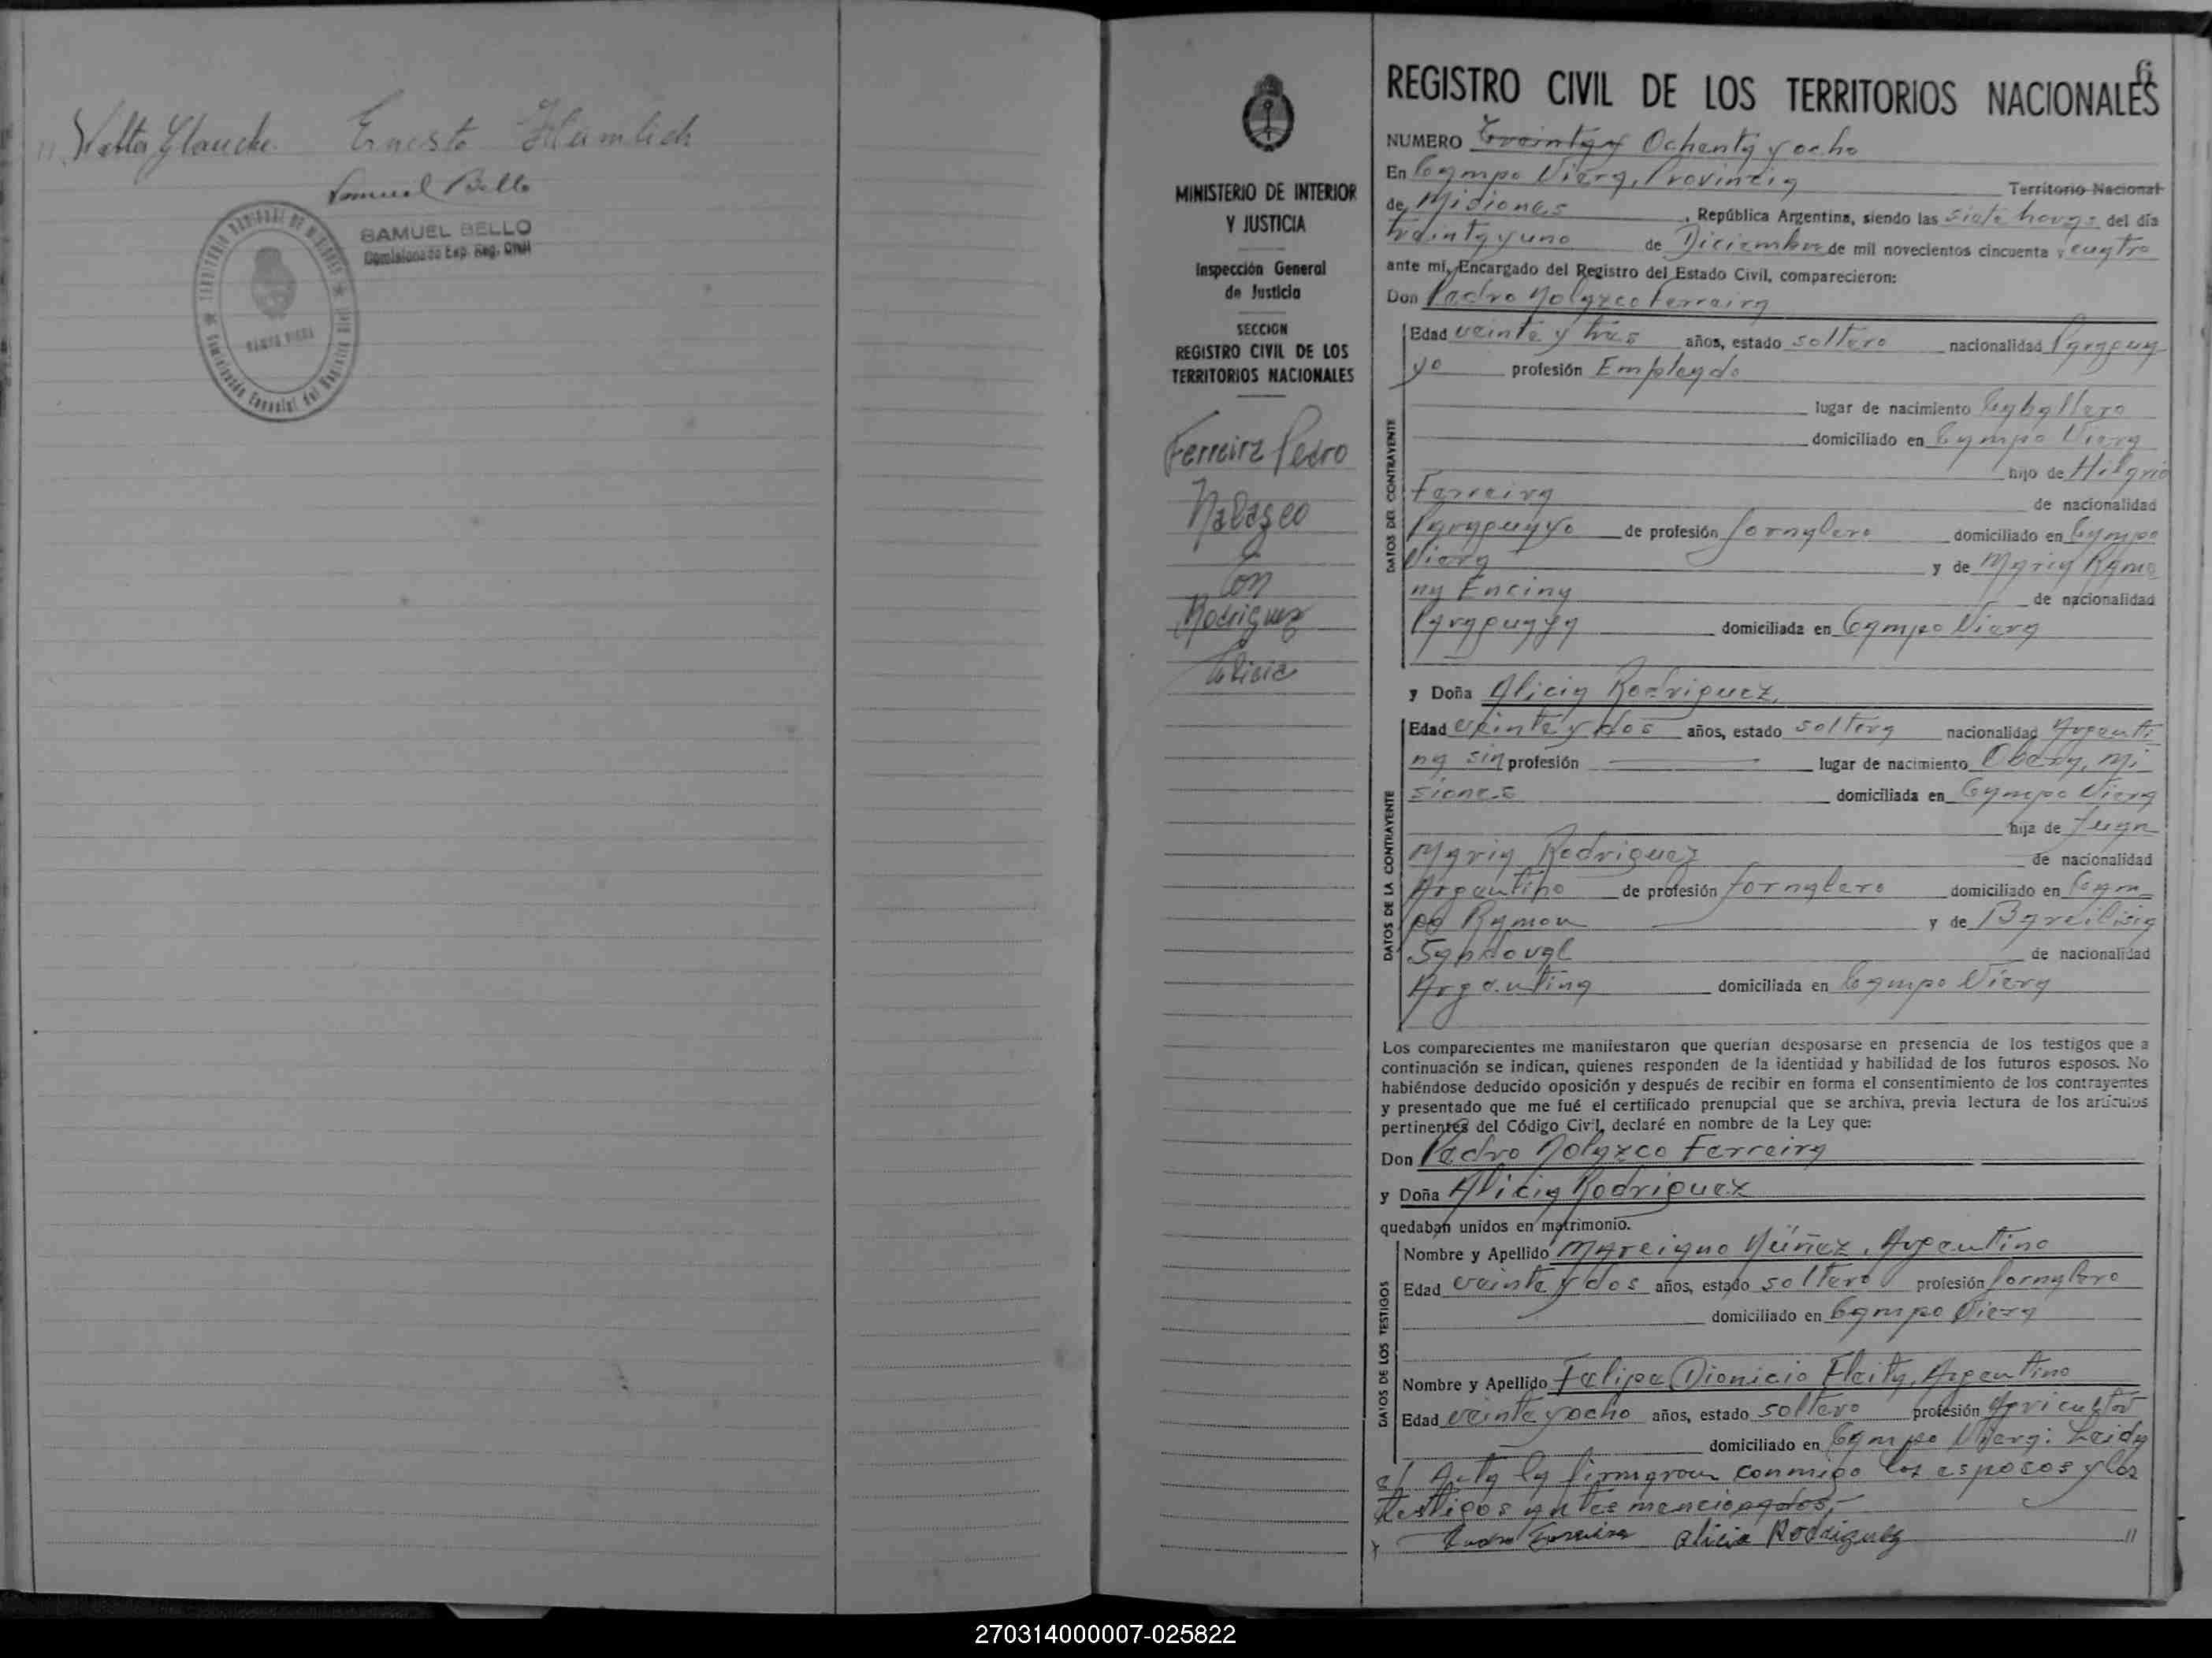 Ernesto
Samuel Bello
SAMUEL BELLO
Comisionado Esp. Reg. Civil
MINISTERIO DE INTERIOR
Y JUSTICIA
Inspección General
de Justicia
SECCION
REGISTRO CIVIL DE LOS
TERRITORIOS NACIONALES
Ferreira Pedro
Nolazco
Con
Rodriguez
Alicia
6
REGISTRO CIVIL DE LOS TERRITORIOS NACIONALES
NUMERO Ochenta y ocho
En Campo Viera, Provincia Territorio Nacional
de Misiones, República Argentina, siendo las siete horas del día
treinta y uno de Diciembre de mil novecientos cincuenta y cuatro
ante mí, Encargado del Registro del Estado Civil, comparecieron:
Don Pedro Nolazco Ferreira
DATOS DEL CONTRAYENTE
Edad veinte y tres años, estado soltero nacionalidad Paraguay
yo profesión Empleado
lugar de nacimiento Caballero
domiciliado en Campo Viera
hijo de Hilario
Ferreira de nacionalidad
Paraguayo de profesión Jornalero domiciliado en Campo
Viera y de Maria Ramo
na Encina de nacionalidad
Paraguaya domiciliada en Campo Viera
y Doña Alicia Rodriguez,
DATOS DE LA CONTRAYENTE
Edad veinte y dos años, estado soltera nacionalidad Argenti
na sin profesión lugar de nacimiento Obera, Mi
siones domiciliada en Campo Viera
hija de Juan
Maria Rodriguez de nacionalidad
Argentino de profesión Jornalero domiciliado en Cam=
po Ramon y de
Sandoval de nacionalidad
Argentina domiciliada en Campo Viera
Los comparecientes me manifestaron que querían desposarse en presencia de los testigos que a
continuación se indican, quienes responden de la identidad y habilidad de los futuros esposos. No
habiéndose deducido oposición y después de recibir en forma el consentimiento de los contrayentes
y presentado que me fué el certificado prenupcial que se archiva, previa lectura de los artículos
pertinentes del Código Civil, declaré en nombre de la Ley que:
Don Pedro Nolazco Ferreira
y Doña Alicia Rodriguez
quedaban unidos en matrimonio.
DATOS DE LOS TESTIGOS
Nombre y Apellido Marciano Núñez, Argentino
Edad veinte y dos años, estado soltero profesión Jornalero
domiciliado en Campo Viera
Nombre y Apellido Felipe Dionicio Fleita, Argentino
Edad veinte y ocho años, estado soltero profesión Agricultor
domiciliado en Campo Viera: Leida
el Acta la firmaron conmigo los esposos y los
testigos antes mencionados,-
Pedro Ferreira Alicia Rodriguez //
270314000007-025822